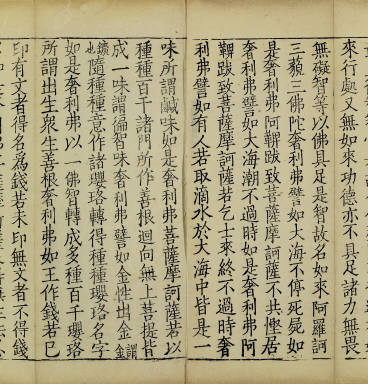 來行處又無如來功德亦不具足諸力無畏
無礙智等以佛具足是智故名如來阿羅訶
三藐三佛陀奢利弗譬如大海不停死屍如
是奢利弗阿鞞跋致菩薩摩訶薩不共慳居
奢利弗譬如大海潮不過時如是奢利弗阿
鞞跋致菩薩摩訶薩若乞士來終不過時奢
利弗譬如有人若取滴水於大海中皆是一
味所謂鹹味如是奢利弗菩薩摩訶薩若以
種種百千諸門所作善根迴向無上菩提皆
成一味謂徧智味奢利弗譬如金性出金謂
鑛也隨種種意作諸瓔珞轉得種種瓔珞名字
如是奢利弗以一佛智轉成多種百千瓔珞
所謂出生衆生善根奢利弗如王作錢若已
印有文者得名為錢若未印無文者不得錢